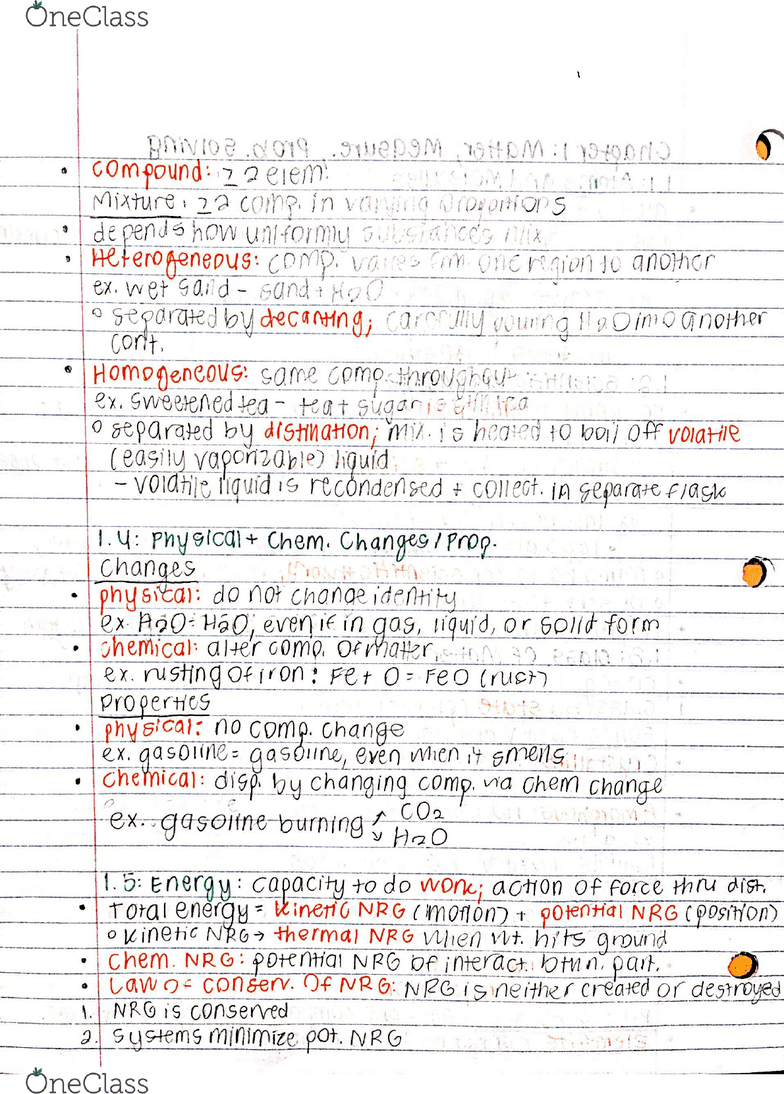 OneClass
• compound: ≥ 2 elem.
Mixture: ≥2 comp. in varying proportions
• depends how uniformly substances mix
• Heterogeneous: comp. varies frm. one region to another
ex. wet sand - sand + H2O
o separated by decanting; carefully pouring H2O into another
cont.
• Homogeneous: same comp. throughout
ex. sweetened tea - tea + sugar
o separated by distillation; mix. is heated to boil off volatile
(easily vaporizable) liquid
- volatile liquid is recondensed + collect. in separate flask
1.4: Physical + Chem. Changes/Prop.
Changes
• physical: do not change identity
ex. H2O = H2O, even if in gas, liquid, or solid form
• chemical: alter comp. of matter
ex. rusting of iron: Fe + O = FeO (rust)
Properties
• physical: no comp. change
ex. gasoline = gasoline, even when it smells
• chemical: disp. by changing comp. via chem change
ex. gasoline burning ↗ CO2
↘ H2O
1.5: Energy: capacity to do work; action of force thru dist.
• Total energy = kinetic NRG (motion) + potential NRG (position)
o kinetic NRG → thermal NRG when wt. hits ground
• Chem. NRG: potential NRG of interact. btwn. part.
• Law of conserv. of NRG: NRG is neither created or destroyed
1. NRG is conserved
2. systems minimize pot. NRG
OneClass